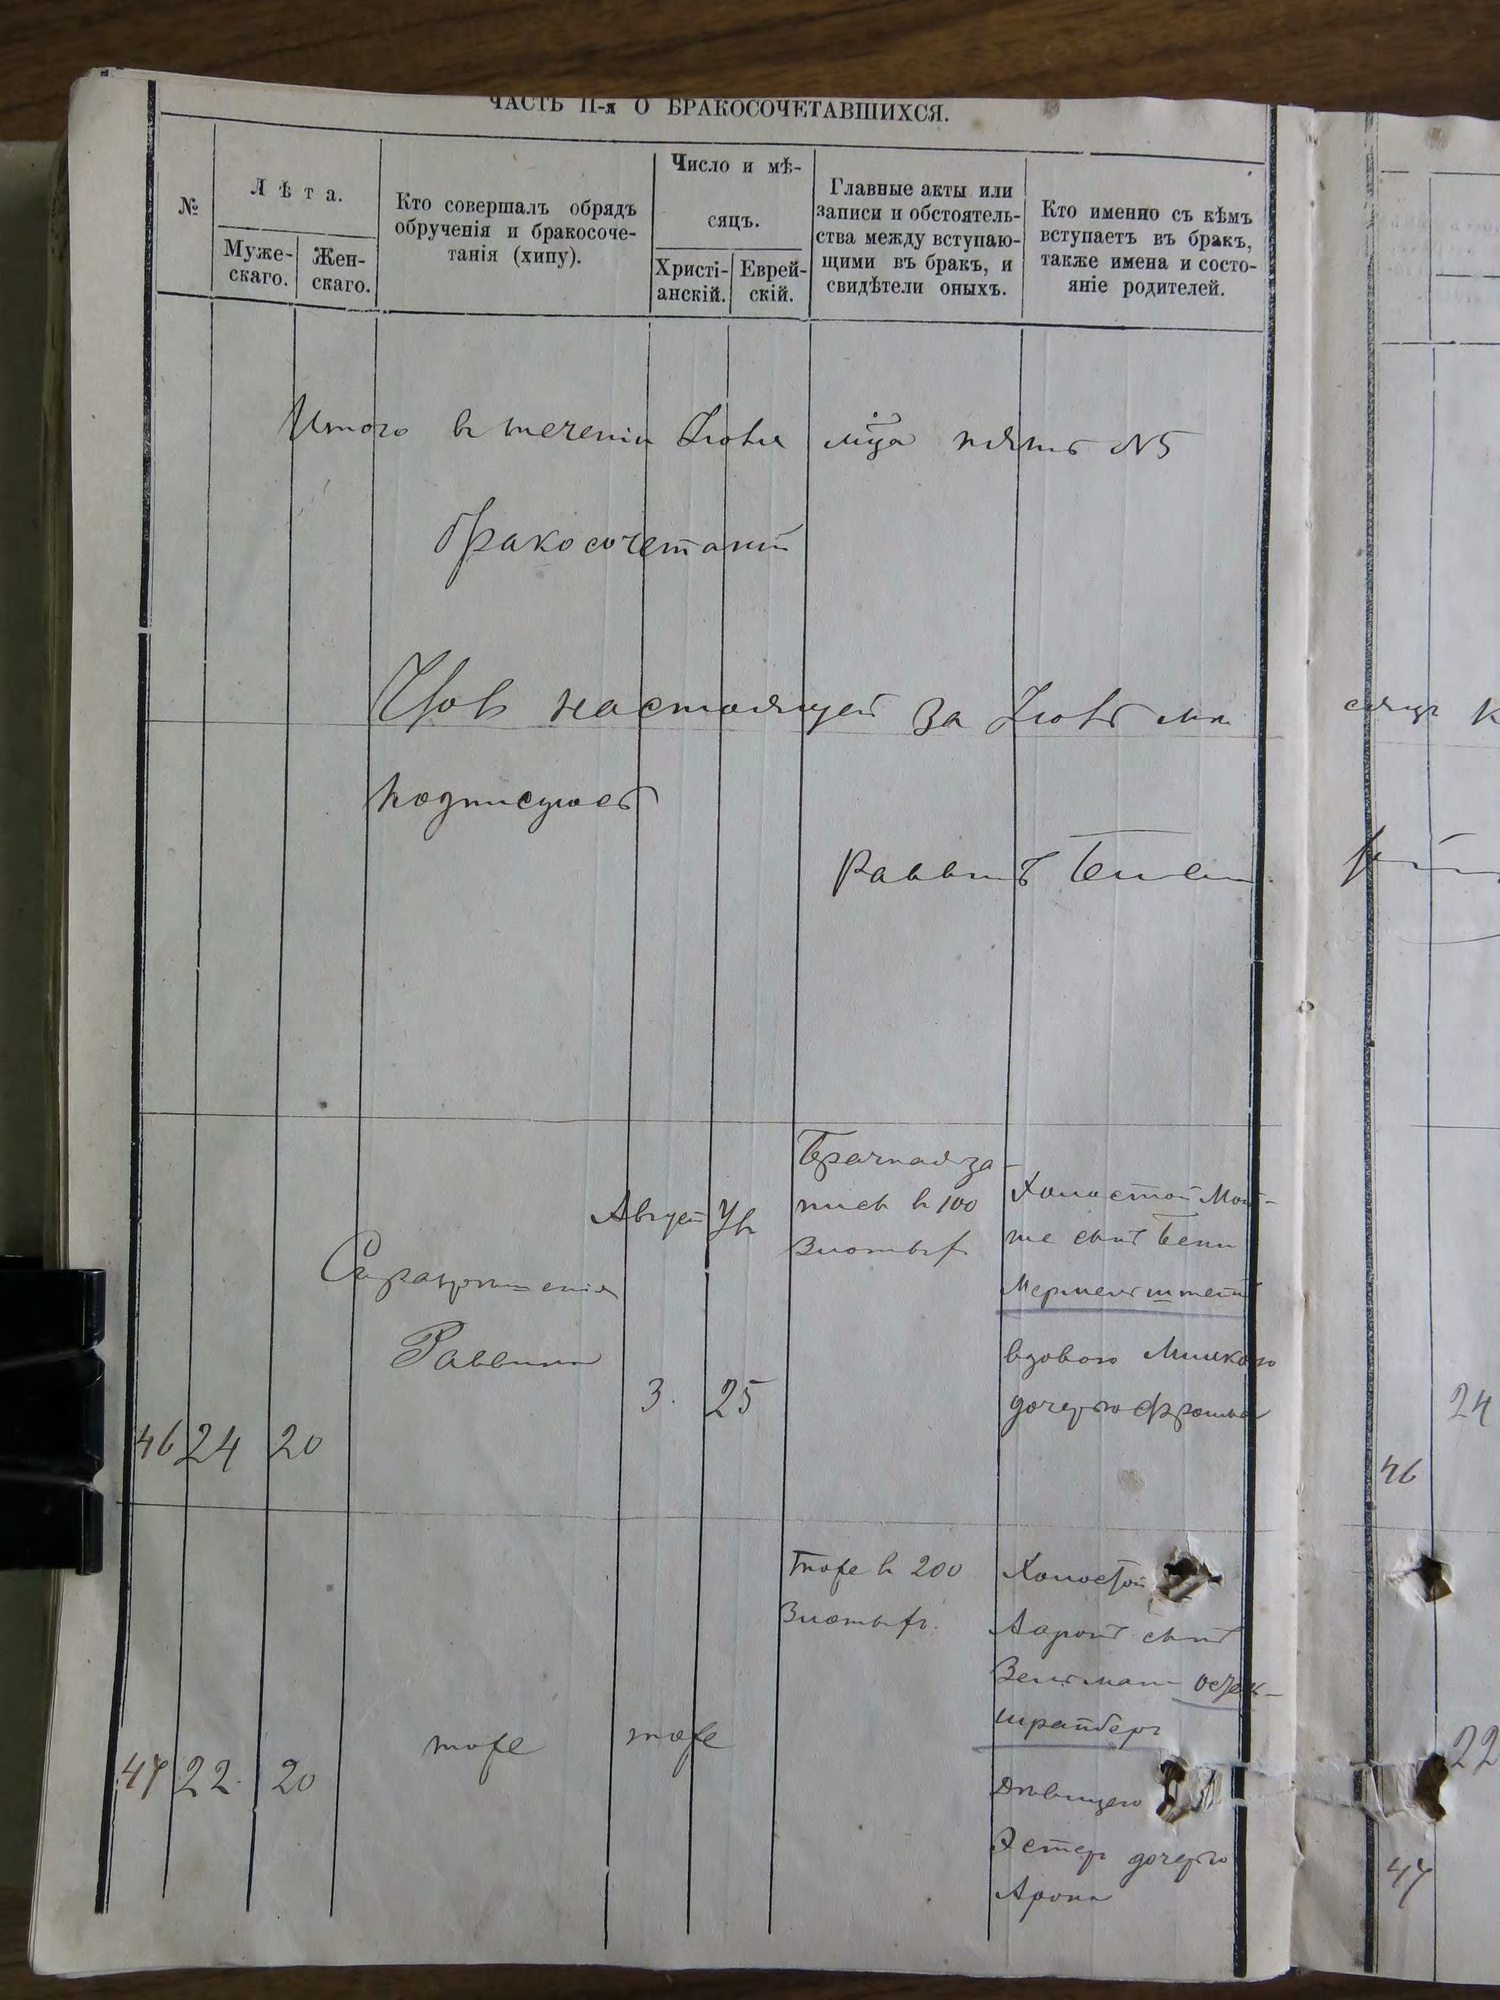 ЧАСТЬ II-я О БРАКОСОЧЕТАВШИХСЯ.
№
Лѣта.
Муже-
скаго.
Жен-
скаго.
Кто совершалъ обрядъ
обрученія и бракосоче-
танія (хипу).
Число и мѣ-
сяцъ.
Христі-
анскій.
Еврей-
скій.
Главные акты или
записи и обстоятель-
ства между вступаю-
щими въ бракъ, и
свидѣтели оныхъ.
Кто именно съ кѣмъ
вступаетъ въ бракъ,
также имена и состо-
яніе родителей.
Итого в течении Іюля мца пять №5
бракосочетаній
настоящей за Іюль мѣ
сяцъ
подписуемъ
Раввинъ
46
24
20
Съ разрѣшенія
Раввина
Августъ
3.
Ув
25
Брачная за-
пись в 100
Злотых
Холостой Мой-
ше сынъ Бени
Мермельштейнъ
вдовою
дочерью
47
22.
20
тоже
тоже
Тоже в 200
Злотых.
Холостой
Ааронъ сынъ
Зельман
шрайберъ
дѣвицею
Эстеръ дочерью
Арона
24
46
22
47